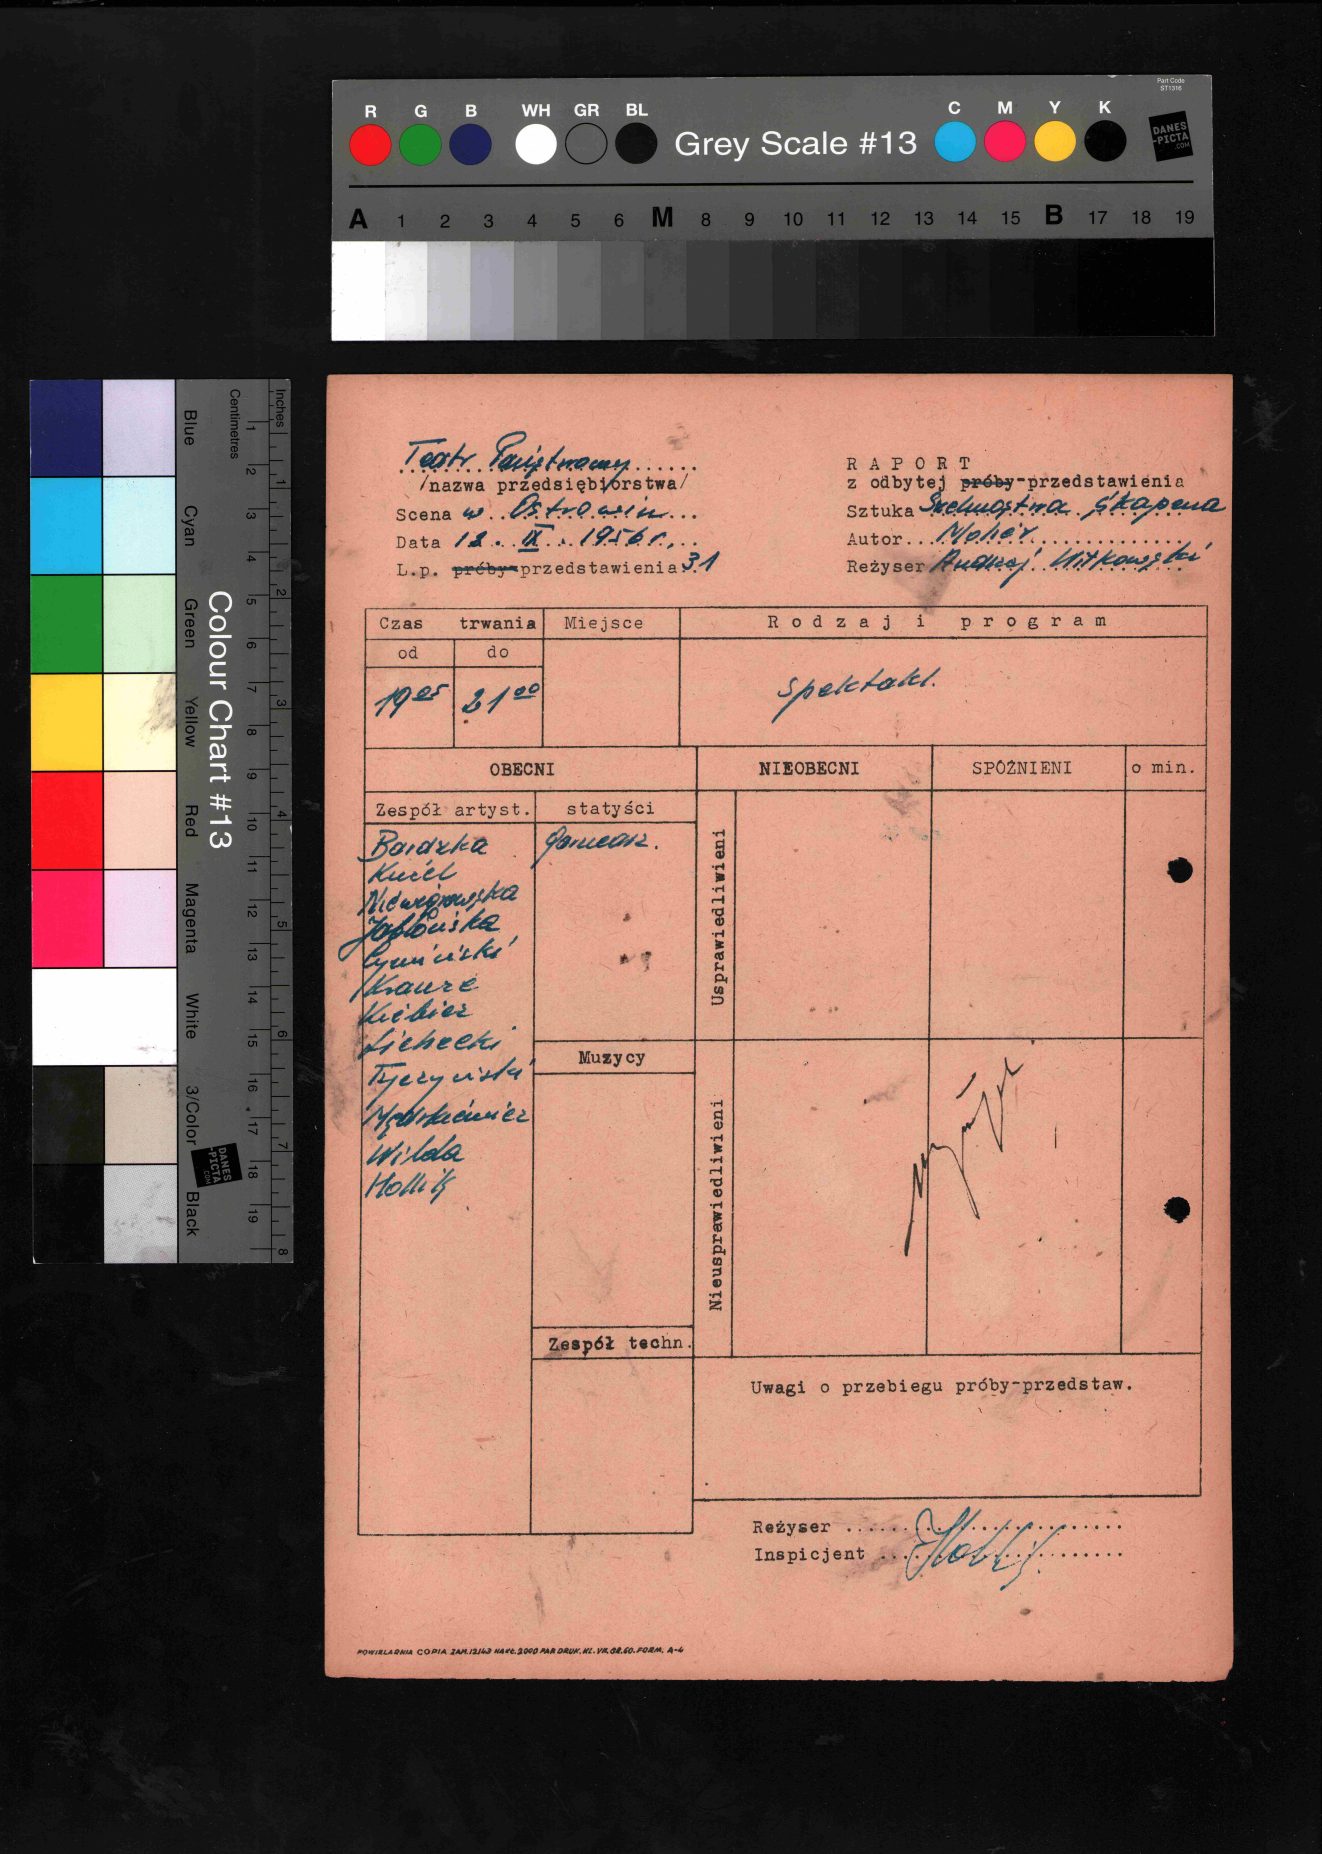 Part Code
ST1316
R G B WH GR BL Grey Scale #13 C M Y K
DANES
-PICTA
.COM
A 1 2 3 4 5 6 M 8 9 10 11 12 13 14 15 B 17 18 19
Colour Chart #13
Blue Cyan Green Yellow Red Magenta White 3/Color Black
Centimetres 1 2 3 4 5 6 7 8 9 10 11 12 13 14 15 16 17 18 19
Inches 1 2 3 4 5 6 7 8
DANES
-PICTA
.COM
Teatr Państwowy
/nazwa przedsiębiorstwa/
Scena w Ostrowiu
Data 12. IX. 1956 r.
L.p. próby-przedstawienia 31
R A P O R T
z odbytej próby-przedstawienia
Sztuka Szelmostwa Skapena
Autor Molier
Reżyser Andrzej Witkowski
Czas trwania Miejsce Rodzaj i program
od do
19 05 21 00 Spektakl.
OBECNI NIEOBECNI SPÓŹNIENI o min.
Zespół artyst. statyści
Bardzka
Kucel
Jabłońska
Krauze
Kiebicz
Lichecki
Tyczyński
Wilda
Hollik
Muzycy
Zespół techn.
Usprawiedliwieni
Nieusprawiedliwieni
Uwagi o przebiegu próby-przedstaw.
Reżyser
Inspicjent Hollik
POWIELARNIA COPIA ZAM. 12143 NAKŁ. 2000 PAP. DRUK. KL. VII. GR. 60. FORM. A-4